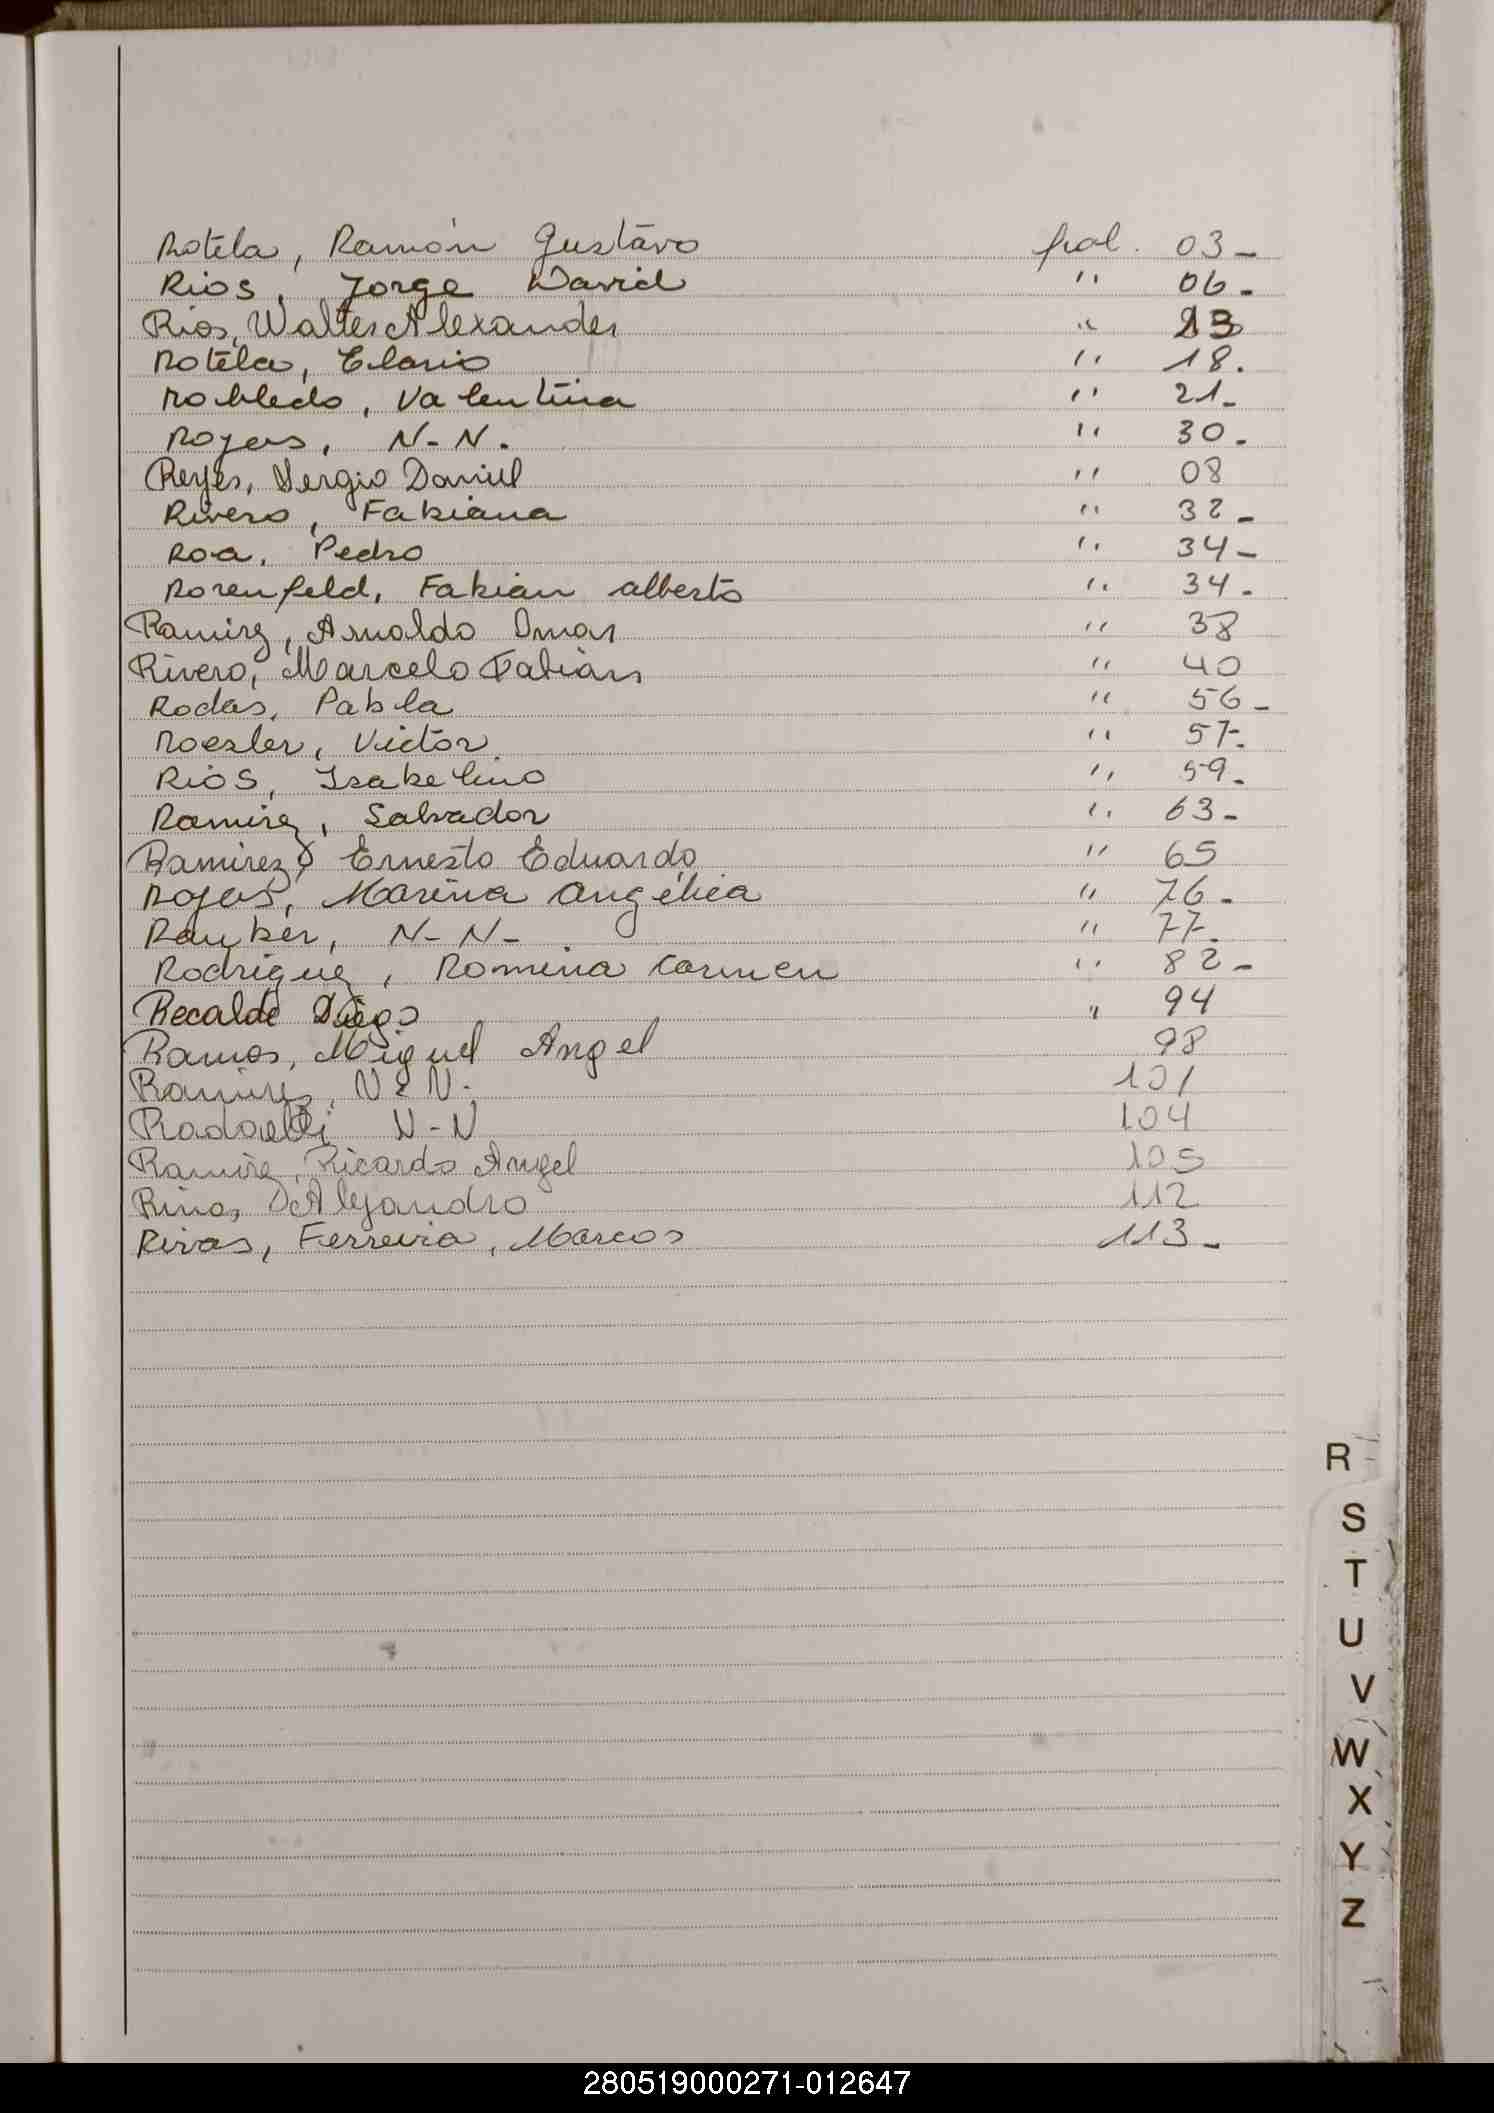 Rotela, Ramón Gustavo fol. 03-
Rios, Jorge David " 06-
Rios, Walter Alexander " 13
Rotela, Elario " 18.
Robledo, Valentina " 21-
Rojas, N-N. " 30-
Reyes, Sergio Daniel " 08
Rivero, Fabiana " 32-
Roa, Pedro " 34-
Rosenfeld, Fabian alberto " 34-
Ramirez, Arnoldo Omar " 38
Rivero, Marcelo Fabian " 40
Rodas, Pabla " 56-
Roesler, Victor " 57-
Rios, Isabelino " 59-
Ramirez, Salvador " 63-
Ramirez, Ernesto Eduardo " 65
Rojas, Marina Angélica " 76-
N-N- " 77-
Rodriguez, Romina Carmen " 82-
Recalde Diego " 94
Ramos, Miguel Angel 98
Ramirez, N-N. 101
N-N 104
Ramirez, Ricardo Angel 105
Alejandro 112
Rivas, Ferreira, Marcos 113-
R
S
T
U
V
W
X
Y
Z
280519000271-012647